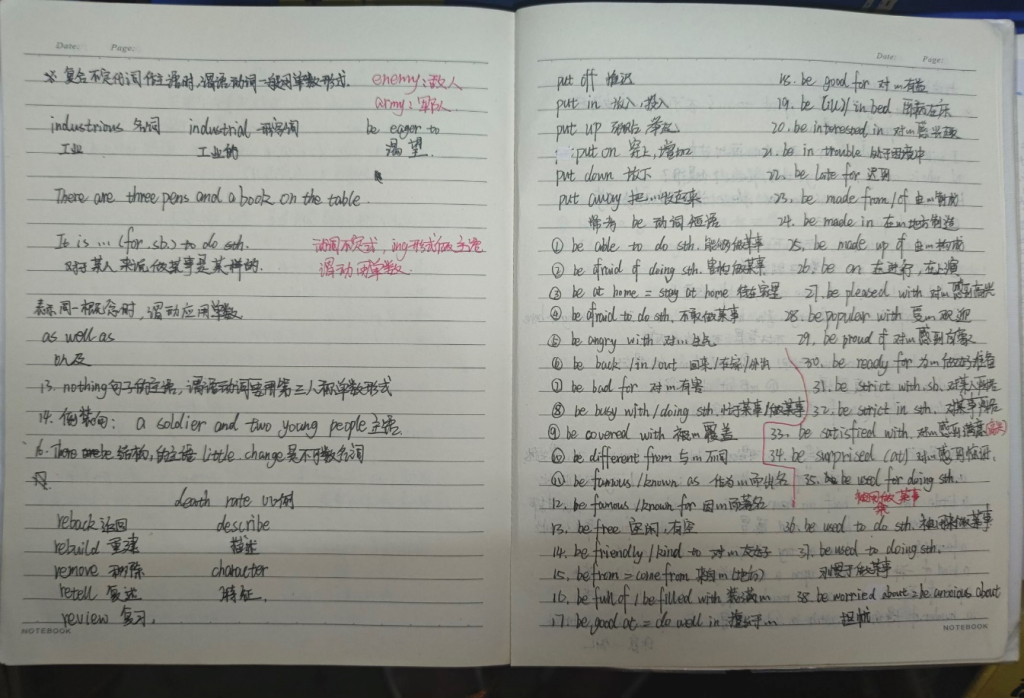 Date: Page:
※ 复合不定代词作主语时,谓语动词一般用单数形式. enemy:敌人
army:军队
industrious 名词 industrial 形容词 be eager to
工业 工业的 渴望
There are three pens and a book on the table.
It is ... (for sb.) to do sth. 动词不定式, ing形式做主语
对于某人来说做某事是某样的. 谓动用单数.
表示同一概念时,谓动应用单数
as well as
以及
13. nothing句子的主语,谓语动词要用第三人称单数形式
14. 倒装句: a soldier and two young people主语.
16. There are be 结构, 的主语 little change是不可数名词
death rate 比例
reback 返回 describe
rebuild 重建 描述
remove 移除 character
retell 复述 特征.
review 复习.
NOTEBOOK
Date: Page:
put off 推迟
put in 放入,投入
put up
put on 穿上,增加
put down 放下
put away 把...收起来
常考 be 动词短语
① be able to do sth. 能够做某事
② be afraid of doing sth. 害怕做某事
③ be at home = stay at home 待在家里
④ be afraid to do sth. 不敢做某事
⑤ be angry with 对...生气
⑥ be back /in /out 回来/在家/外出
⑦ be bad for 对m有害
⑧ be busy with/doing sth. 忙于某事/做某事
⑨ be covered with 被m覆盖
⑩ be different from 与m不同
⑪ be famous/known as 作为m而出名
12. be famous/known for 因m而著名
13. be free 空闲,有空
14. be friendly/kind to 对m友好
15. be from = come from 来自m(地方)
16. be full of / be filled with 装满m
17. be good at = do well in 擅长于m
18. be good for 对m有益
19. be (ill) in bed 卧病在床
20. be interested in 对m感兴趣
21. be in trouble 处于困境中
22. be late for 迟到
23. be made from/of 由m制成
24. be made in 在m地方制造
25. be made up of 由m构成
26. be on 在进行,在上演
27. be pleased with 对m感到高兴
28. be popular with 受m欢迎
29. be proud of 对m感到自豪
30. be ready for 为m做好准备
31. be strict with sb. 对某人严格
32. be strict in sth. 对某事严格
33. be satisfied with. 对m感到满意
34. be surprised (at) 对m感到惊讶.
35. be used for doing sth.
被用做某事
36. be used to do sth. 被用来做某事
37. be used to doing sth.
习惯于做某事
38. be worried about = be anxious about
担忧
NOTEBOOK